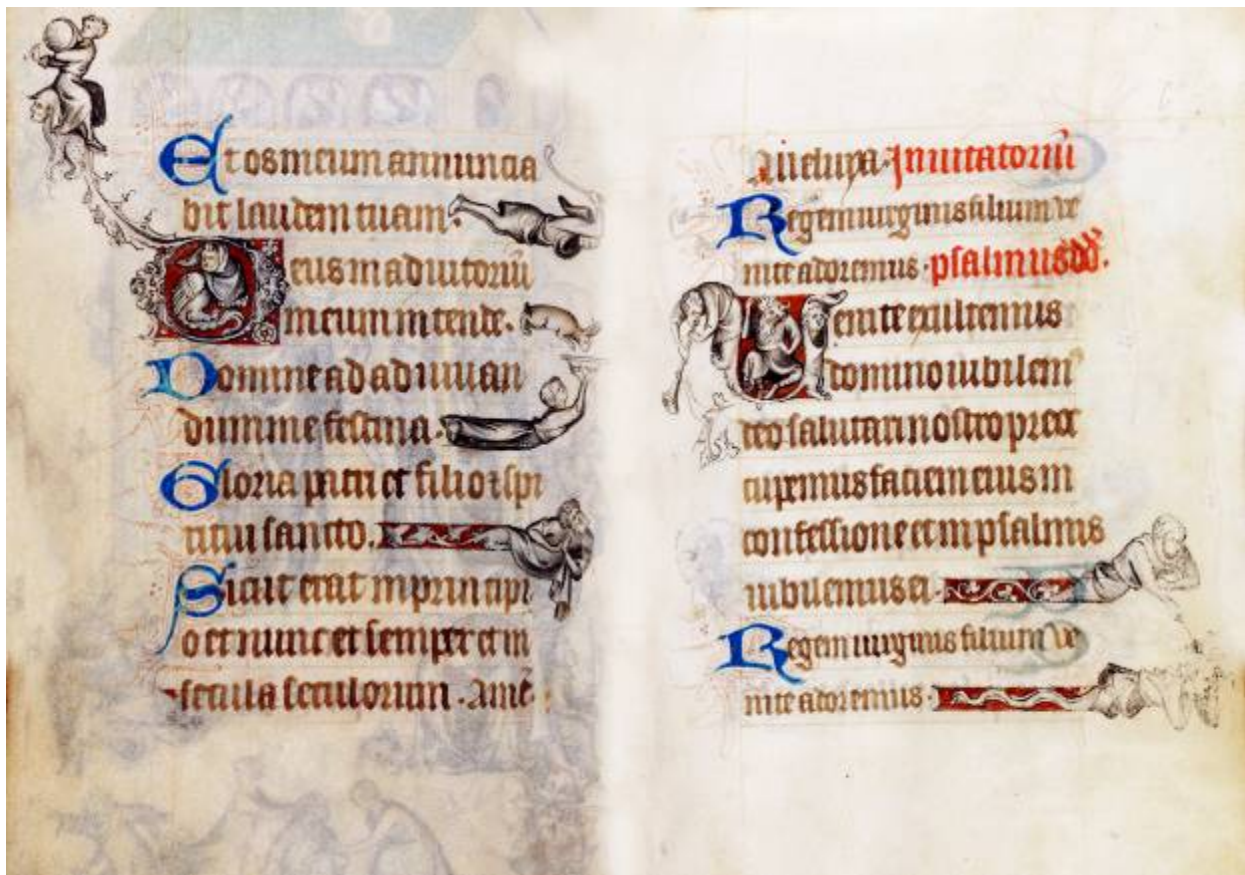 Et os meum annuncia
bit laudem tuam.
Deus in adiutoriū
meum intende.
Domine ad adiuuan
dum me festina.
Gloria patri et filio ⁊ spi
ritui sancto.
Sicut erat in principi
o et nunc et semper et in
secula seculorum. Amē
Alleluya. Inuitatoriū
Regem uirginis filium ve
nite adoremus. psalmus dd.
Uenite exultemus
domino iubilem
deo salutari nostro preoc
cupemus faciem eius in
confessione et in psalmis
iubilemus ei.
Regem uirginis filium ve
nite adoremus.